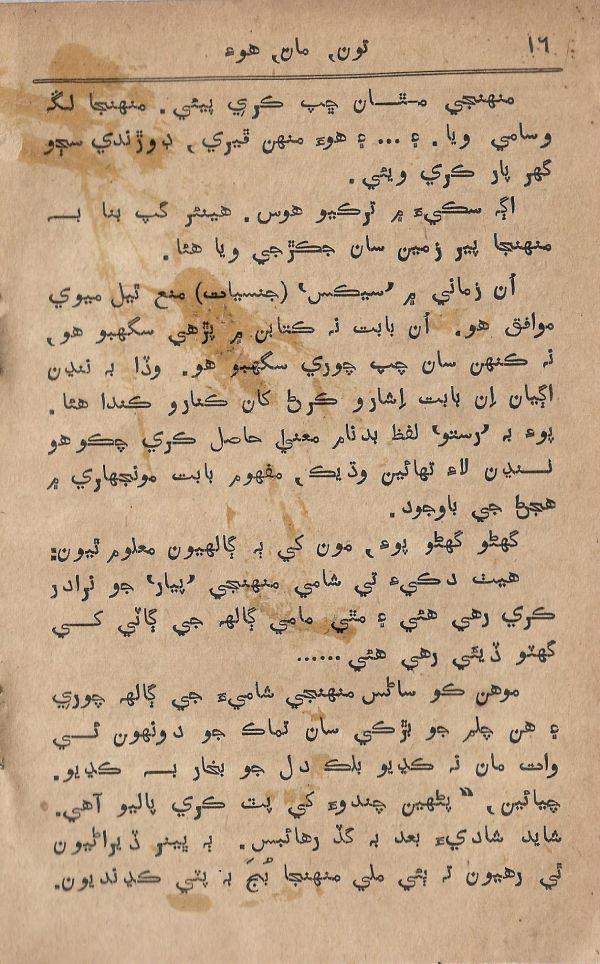 ١٦
تون، مان، هوءَ
منهنجي مٿان چپ ڪري پيئي. منهنجا لڱ
وسامي ويا. ۽ ... ۽ هوءَ منهن ڦيري، ڊوڙندي سڄو
گهر پار ڪري ويئي.
اڳہ سڪيءَ ۾ ترڪيو هوس. هينئر گپ بنا بہ
منهنجا پير زمين سان جڪڙجي ويا هئا.
اُن زماني ۾ ’سيڪس‘ (جنسيات) منع ٿيل ميوي
موافق هو. اُن بابت نہ ڪتابن ۾ پڙهي سگهبو هو،
نہ ڪنهن سان چپ چوري سگهبو هو. وڏا بہ ننڍن
اڳيان اِن بابت اِشارو ڪرڻ کان ڪنارو ڪندا هئا.
پوءِ بہ ’رستو‘ لفظ بدنام معنيٰ حاصل ڪري چڪو هو
ننڍن لاءِ تهائين وڌيڪ، مفهوم بابت مونجهاري ۾
هجڻ جي باوجود.
گهڻو گهڻو پوءِ، مون کي ٻہ ڳالهيون معلوم ٿيون:
هيٺ دڪيءَ تي شامي منهنجي ’پيار‘ جو ترادر
ڪري رهي هئي ۽ مٿي مامي ڳالهہ جي ڳاٽي کي
گهٽو ڏيئي رهي هئي......
موهن ڪو ساڻس منهنجي شاميءَ جي ڳالهہ چوري
۽ هن چلم جو بڙڪي سان تماڪ جو دونهون ئي
وات مان نہ ڪڍيو بلڪ دل جو بخار بہ ڪڍيو.
چيائين، ”پڻهين چندوءَ کي پٽ ڪري پاليو آهي.
شايد شاديءَ بعد بہ گڏ رهائيس. ٻہ ڀينر ڏيراڻيون
ٿي رهيون تہ ٻئي ملي منهنجا بُنج بہ پٽي ڪڍنديون.